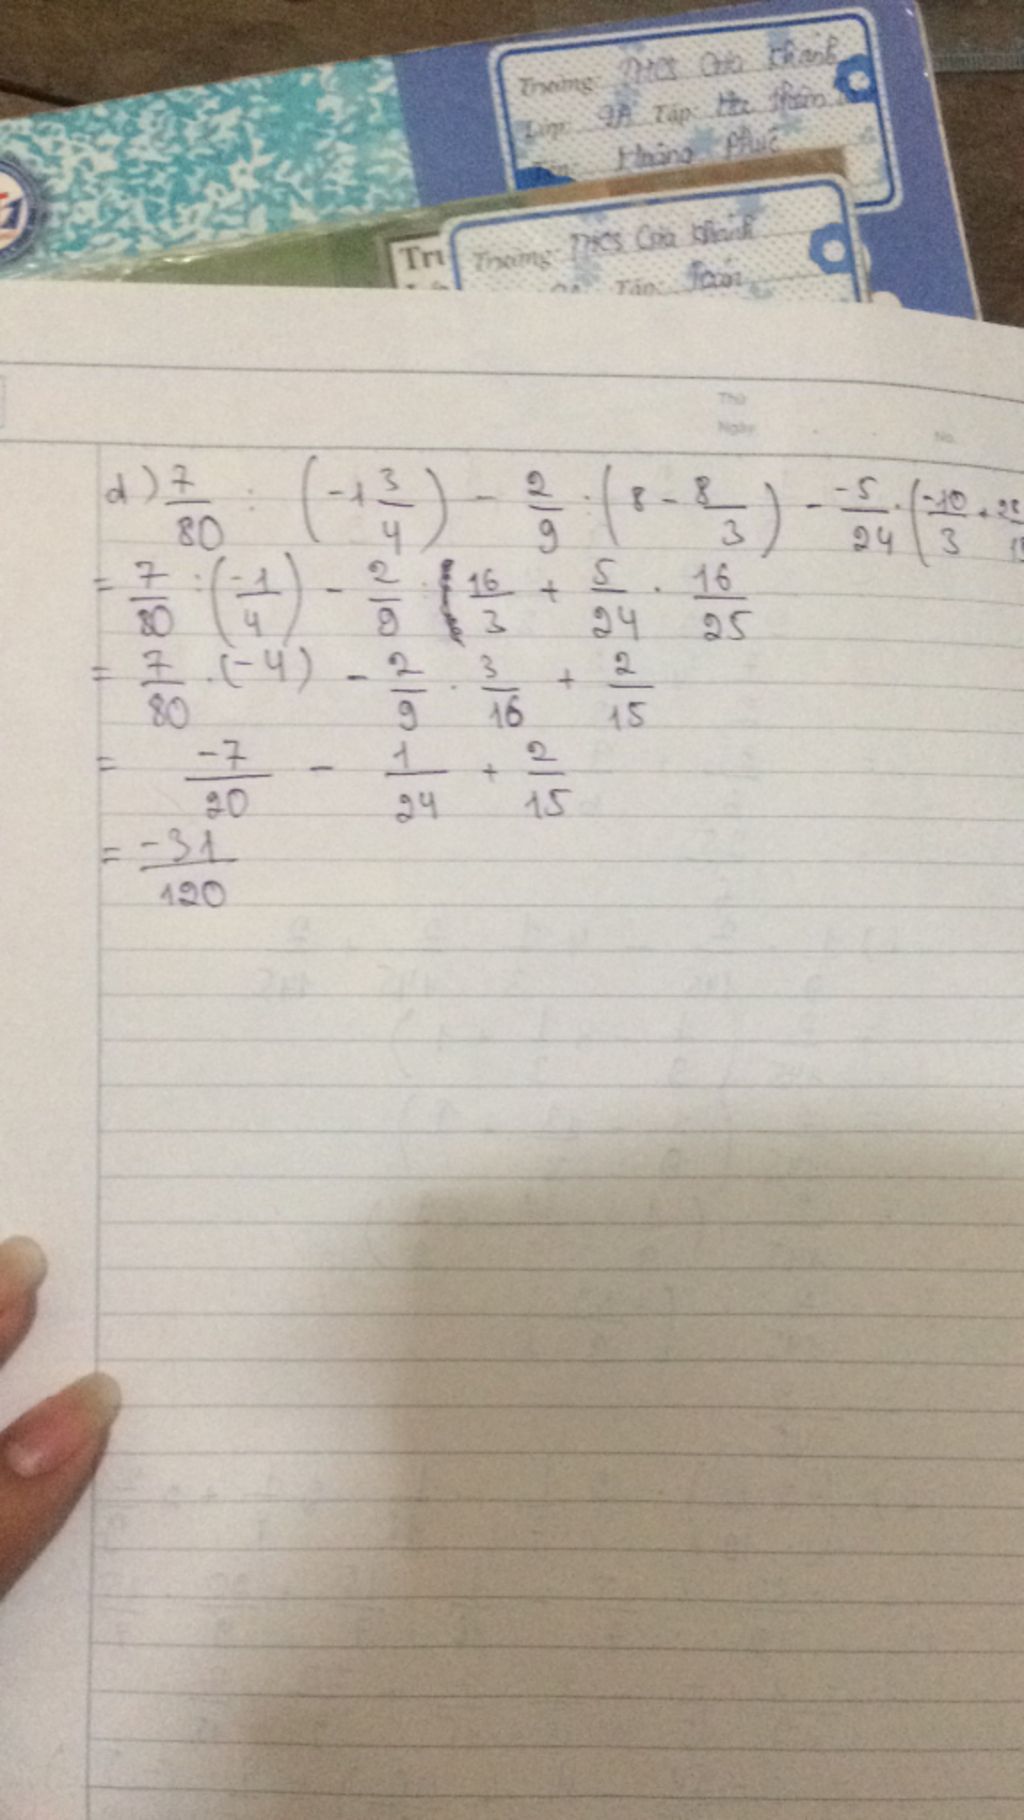 Trường: THCS Cửa Khánh
Lớp: 9A Tập:
Hoàng Phúc
Trường: THCS Cửa Khánh
Tập: Toán
Thứ
Ngày
No.
d) 7/80 : (-1 3/4) - 2/9 : (8 - 8/3) - -5/24 . (-10/3 +
= 7/80 : (-1/4) - 2/9 : 16/3 + 5/24 . 16/25
= 7/80 . (-4) - 2/9 . 3/16 + 2/15
= -7/20 - 1/24 + 2/15
= -31/120